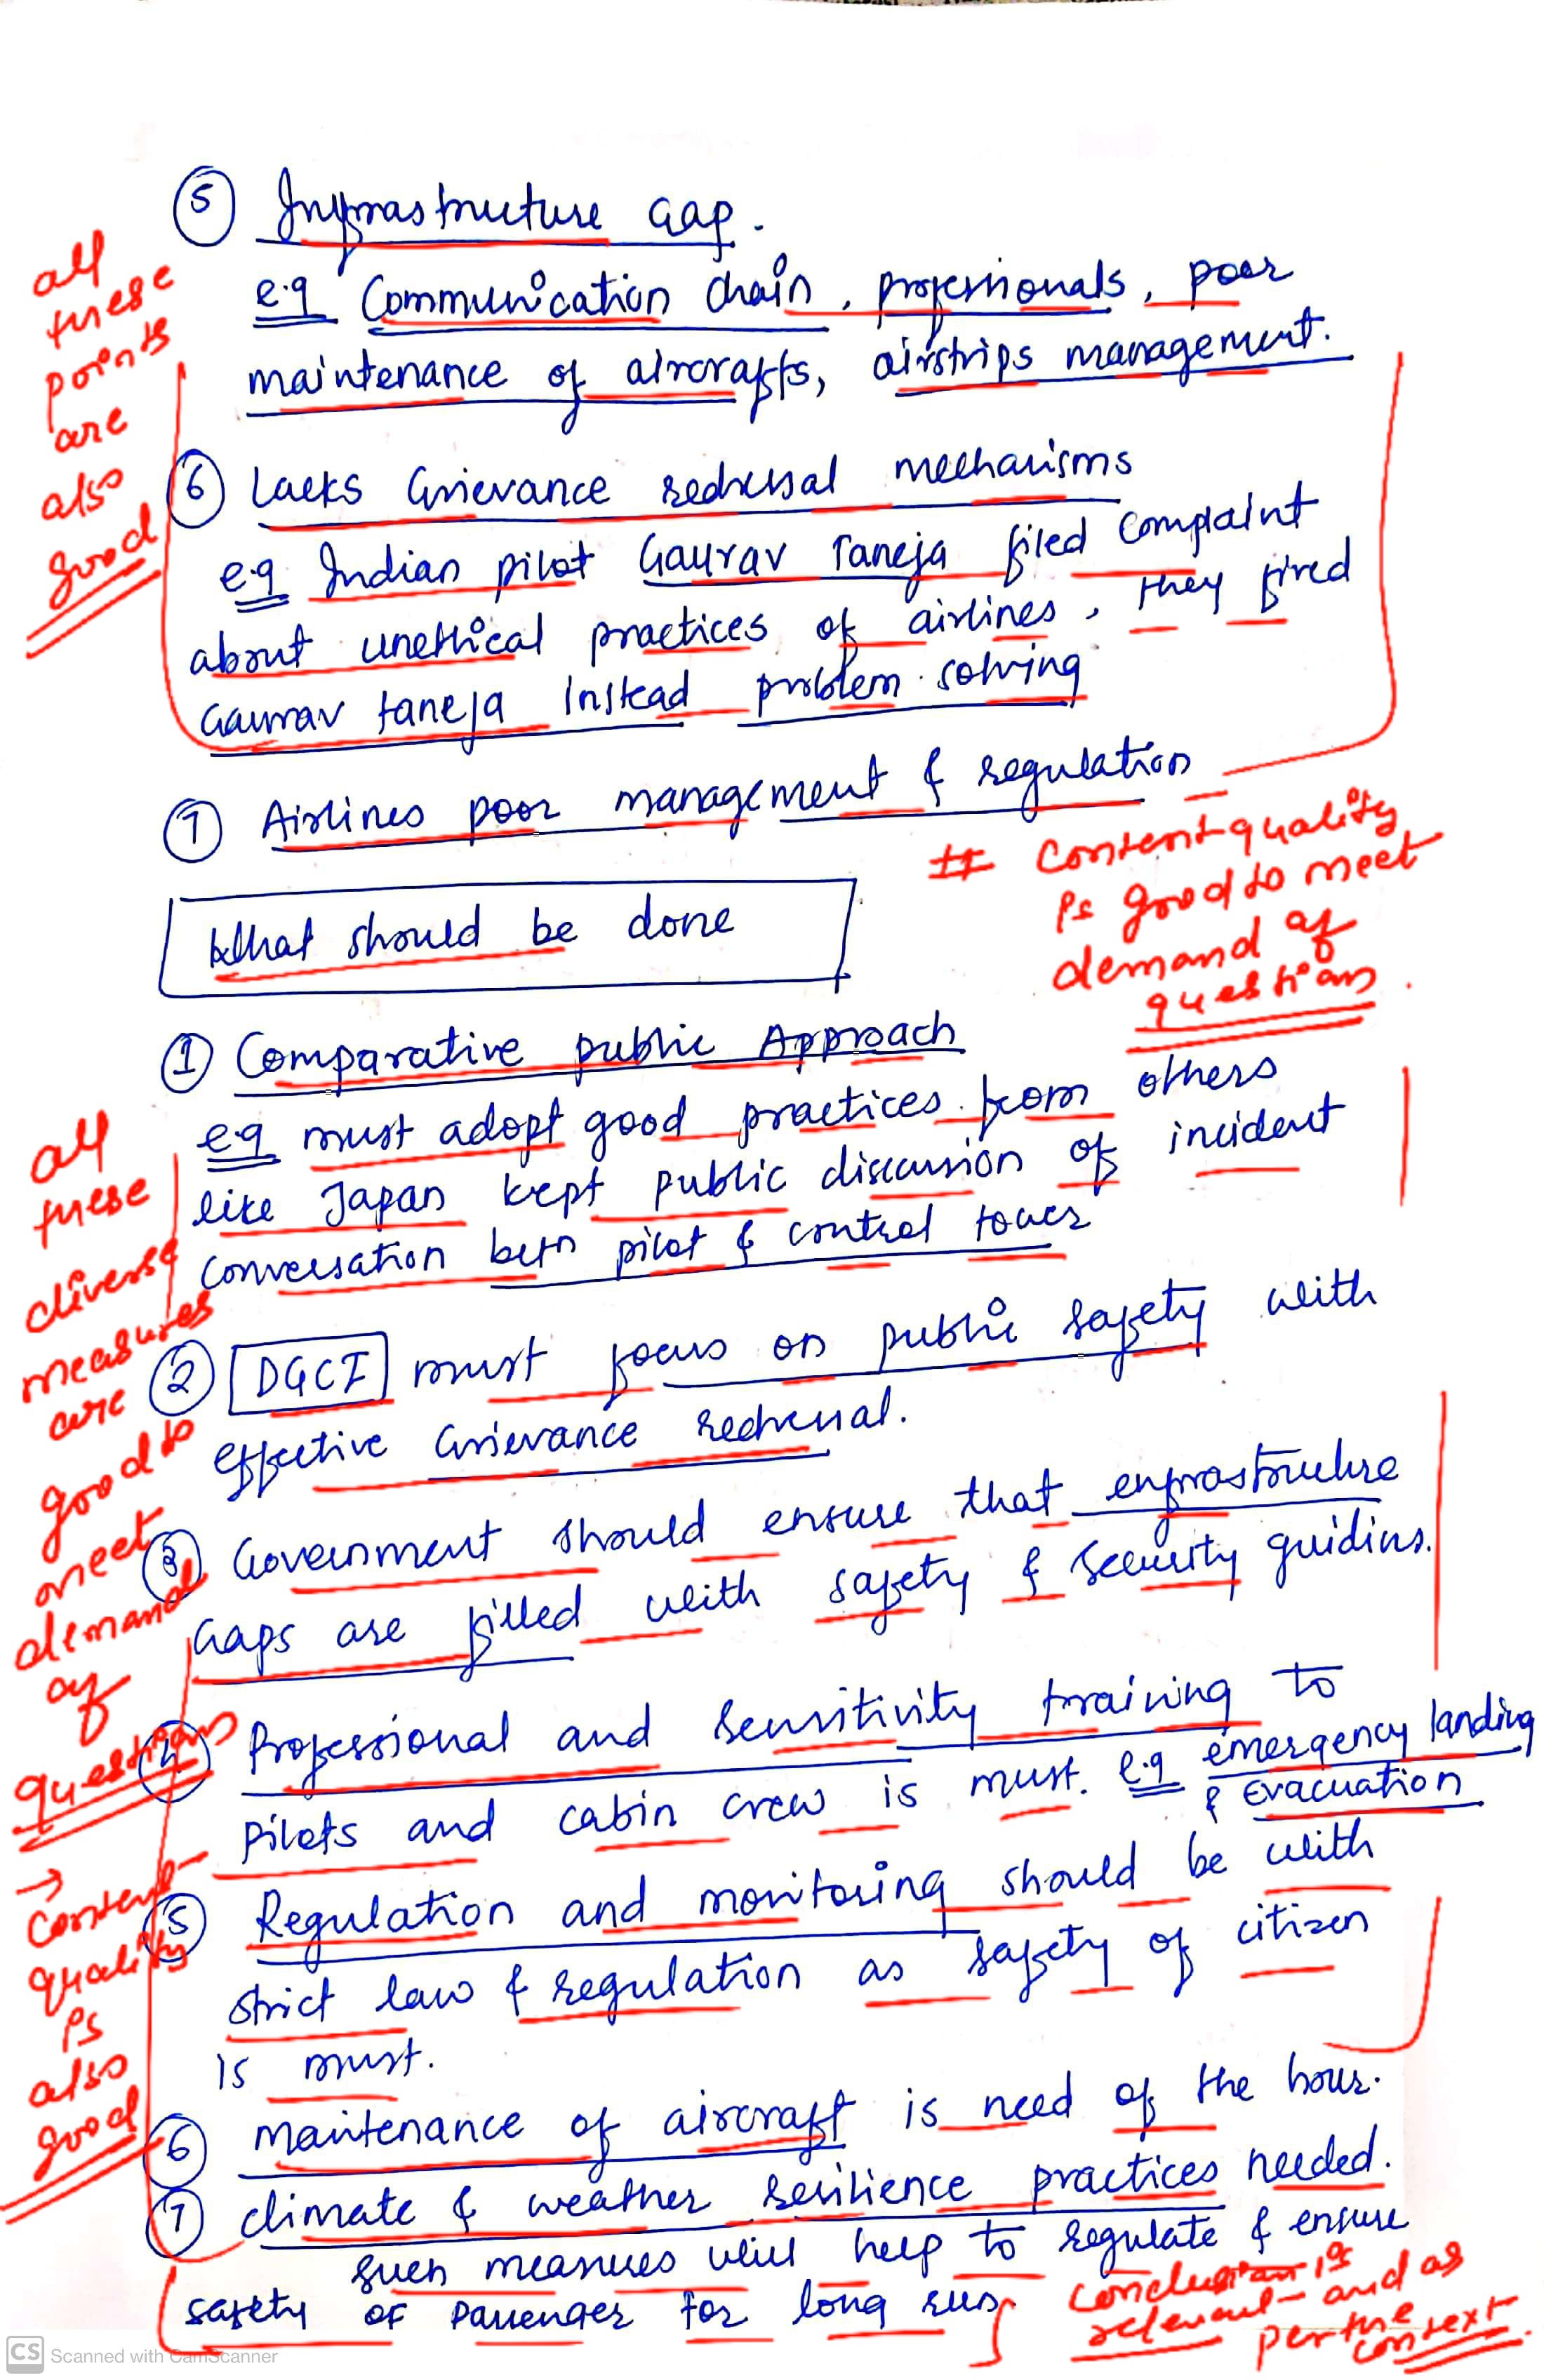 5 Infrastructure Gap.
e.g Communication chain, professionals, poor
maintenance of aircrafts, airstrips management.
all
these
points
are
also
good
6 Lacks Grievance redressal mechanisms
e.g Indian pilot Gaurav Taneja filed complaint
about unethical practices of airlines, they fired
Gaurav taneja instead problem solving
7 Airlines poor management & regulation
# Content quality
is good to meet
demand of
question.
What should be done
1 Comparative public Approach
e.g must adopt good practices from others
like Japan kept public discussion of incident
conversation betn pilot & control tower
all
these
diverse
measures
are
good to
meet
demand
of
question
2 DGCI must focus on public safety with
effective Grievance redressal.
3 Government should ensure that enfrastructure
Gaps are filled with safety & security guidins.
4 Professional and sensitivity training to
pilots and cabin crew is must. e.g emergency landing
& Evacuation
→
Content
quality
is
also
good
5 Regulation and monitoring should be with
strict law & regulation as safety of citizen
is must.
6 maintenance of aircraft is need of the hour.
7 climate & weather resilience practices needed.
such measures will help to regulate & ensure
safety of passenger for long run.
Conclusion is
relevant and as
per the
context.
CS Scanned with CamScanner